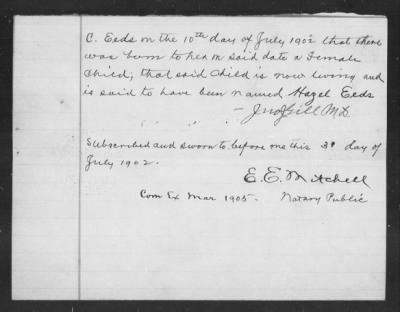 C. Eeds on the 10th day of July 1902 that there
was born to her on said date a Female
Child; that said Child is now living and
is said to have been named Hazel Eeds
- Jno Gill M.D.
Subscribed and sworn to before me this 3" day of
July 1902.
E. E. Mitchell
Com Ex Mar 1905. Notary Public